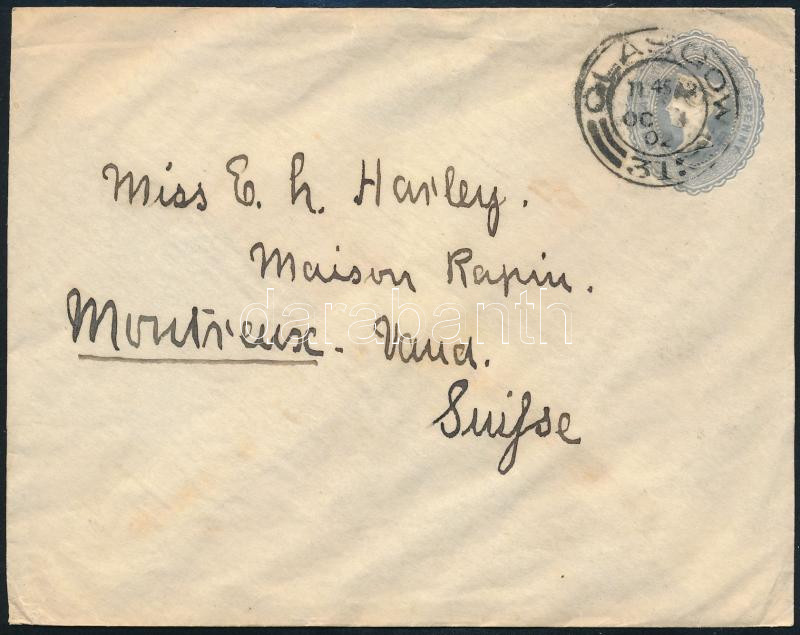 GLASGOW
11.45
OC
02
31
Miss E. h. Harley.
Maison Rapin.
Montreux - Vaud.
Suisse
darabanth